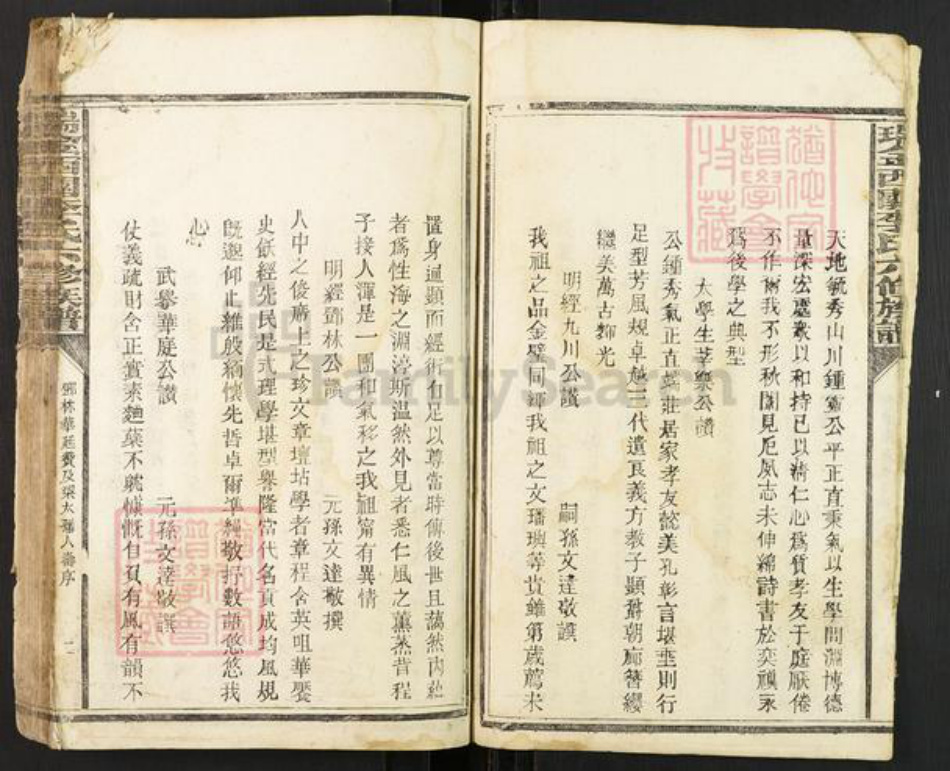 天地毓秀山川鍾靈公平正直秉氣以生學問淵博德
量深宏處衆以和持己以清仁心爲質孝友于庭厭倦
不作爾我不形秋闈見厄夙志未伸綿詩書於奕禩永
爲後學之典型
太學生莘樂公讚
公鍾秀氣正直端莊居家孝友懿美孔彰言堪垂則行
足型芳風規卓越三代遺良義方教子顯爵朝廊簪纓
繼美萬古耀光
明經九川公讚 嗣孫文達敬譔
我祖之品金壁同輝我祖之文璠璵等貴雖第歲薦未
置身通顯而經術自足以尊當時傳後世且藹然內蘊
者爲性海之淵渟斯温然外見者悉仁風之薰烝昔程
子接人渾是一團和氣移之我祖甯有異情
明經鄧林公讚 元孫文達敬撰
人中之俊席上之珍文章壇坫學者章程含英咀華饜
史飫經先民是式理學堪型譽隆當代名貢成均風規
旣邈仰止難般緬懷先哲卓爾準繩敬抒數語悠悠我
心
武舉華庭公讚 元孫文達敬譔
仗義疏財含正實素麯蘖不躭慷慨自負有風有韻不
瑞金西關李氏六修族譜
鄧林華廷費及梁太孺人壽序
FamilySearch
猶他家譜學會收藏